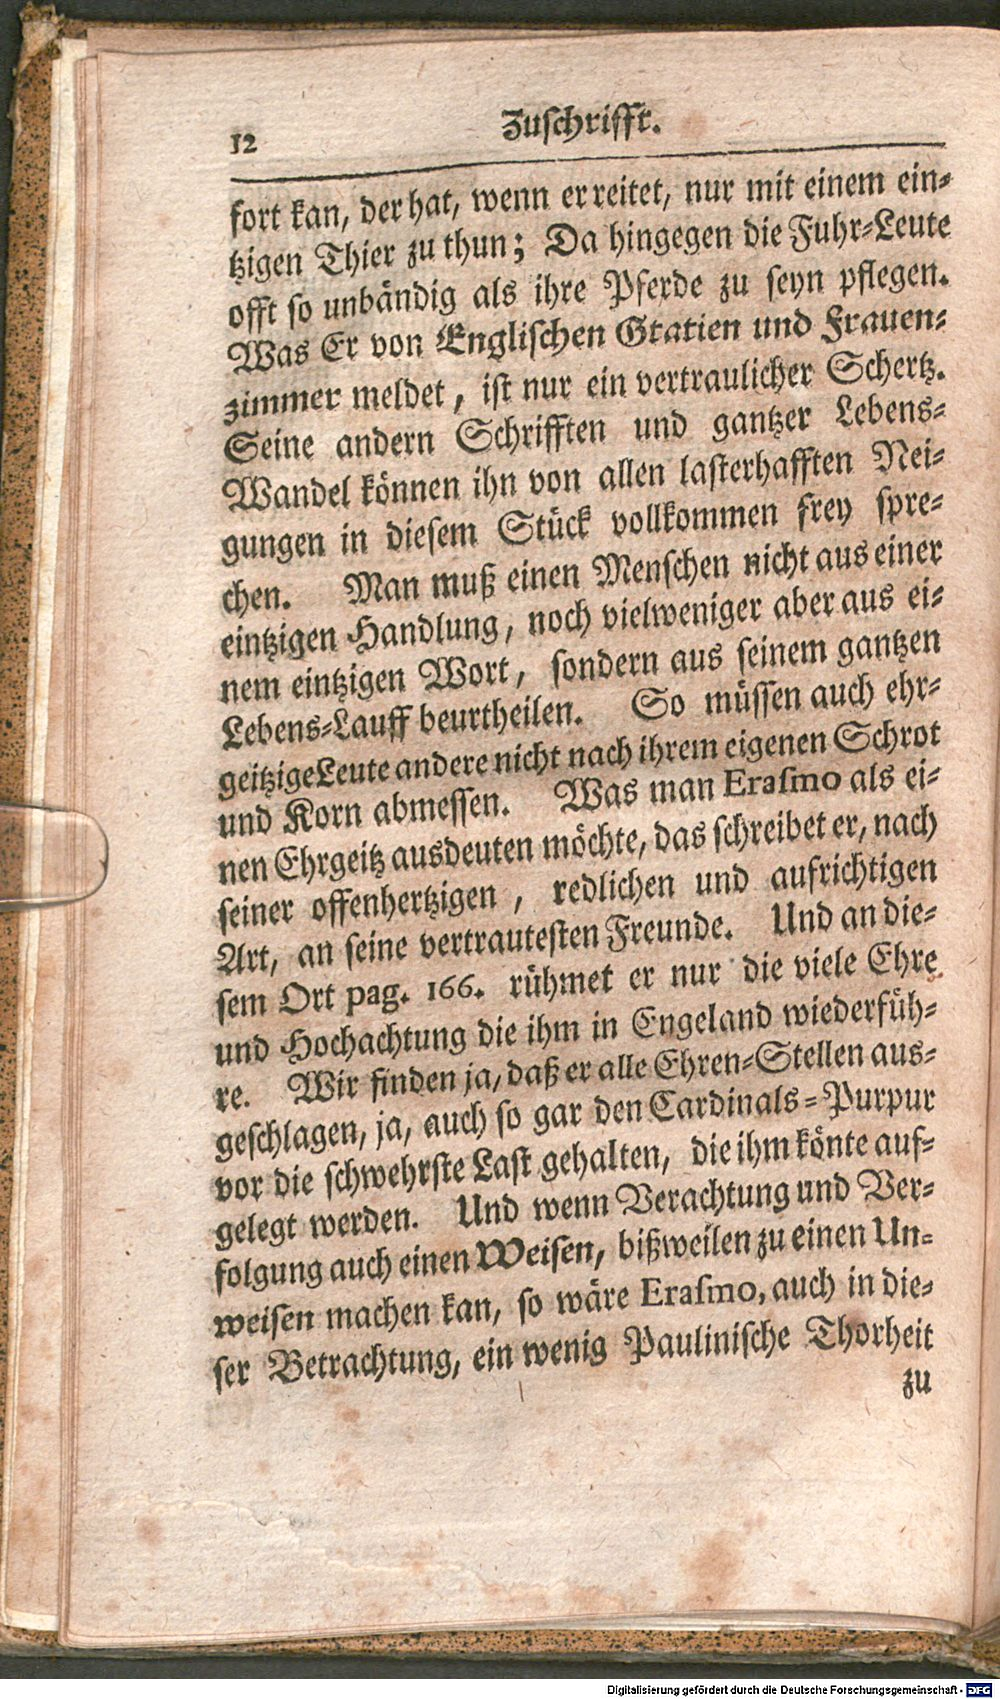 12 Zuschrifft.
fort kan, der hat, wenn er reitet, nur mit einem ein-
tzigen Thier zu thun; Da hingegen die Fuhr-Leute
offt so unbändig als ihre Pferde zu seyn pflegen.
Was Er von Englischen Gratien und Frauen-
zimmer meldet, ist nur ein vertraulicher Schertz.
Seine andern Schrifften und gantzer Lebens-
Wandel können ihn von allen lasterhafften Nei-
gungen in diesem Stück vollkommen frey spre-
chen. Man muß einen Menschen nicht aus einer
eintzigen Handlung, noch vielweniger aber aus ei-
nem eintzigen Wort, sondern aus seinem gantzen
Lebens-Lauff beurtheilen. So müssen auch ehr-
geitzige Leute andere nicht nach ihrem eigenen Schrot
und Korn abmessen. Was man Erasmo als ei-
nen Ehrgeitz ausdeuten möchte, das schreibet er, nach
seiner offenhertzigen, redlichen und aufrichtigen
Art, an seine vertrautesten Freunde. Und an die-
sem Ort pag. 166. rühmet er nur die viele Ehre
und Hochachtung die ihm in Engeland wiederfüh-
re. Wir finden ja, daß er alle Ehren-Stellen aus-
geschlagen, ja, auch so gar den Cardinals-Purpur
vor die schwehrste Last gehalten, die ihm könte auf-
gelegt werden. Und wenn Verachtung und Ver-
folgung auch einen Weisen, bißweilen zu einen Un-
weisen machen kan, so wäre Erasmo, auch in die-
ser Betrachtung, ein wenig Paulinische Thorheit
zu
Digitalisierung gefördert durch die Deutsche Forschungsgemeinschaft - DFG